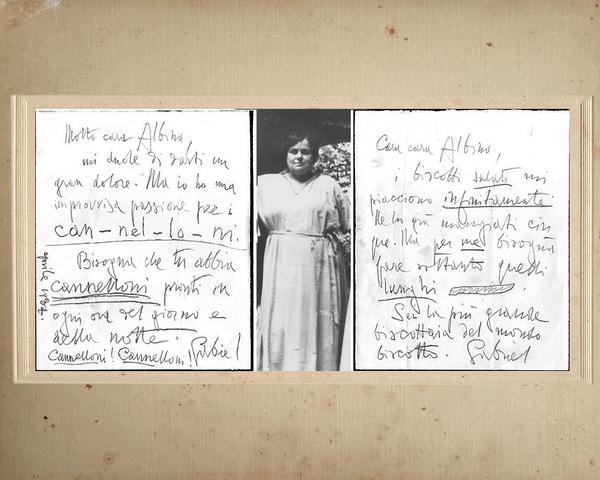 Molto cara Albina,
mi duole di darti un
gran dolore. Ma io ho una
improvvisa passione per i
can-nel-lo-ni.
Bisogna che tu abbia
Cannelloni pronti in
ogni ora del giorno e
della notte.
Cannelloni! Cannelloni! Gabriel
aprile
Cara cara Albina,
i biscotti salati mi
piacciono infinitamente
Ne ho già mangiati cin
que. Ma per me bisogna
fare soltanto quelli
lunghi
Sei la più grande
biscottaia del mondo
biscotto. Gabriel